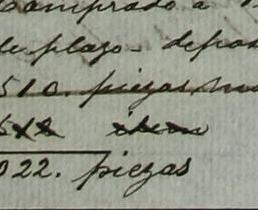 Comprado a
de plazo - depos
510. piezas
512 idem
022. piezas